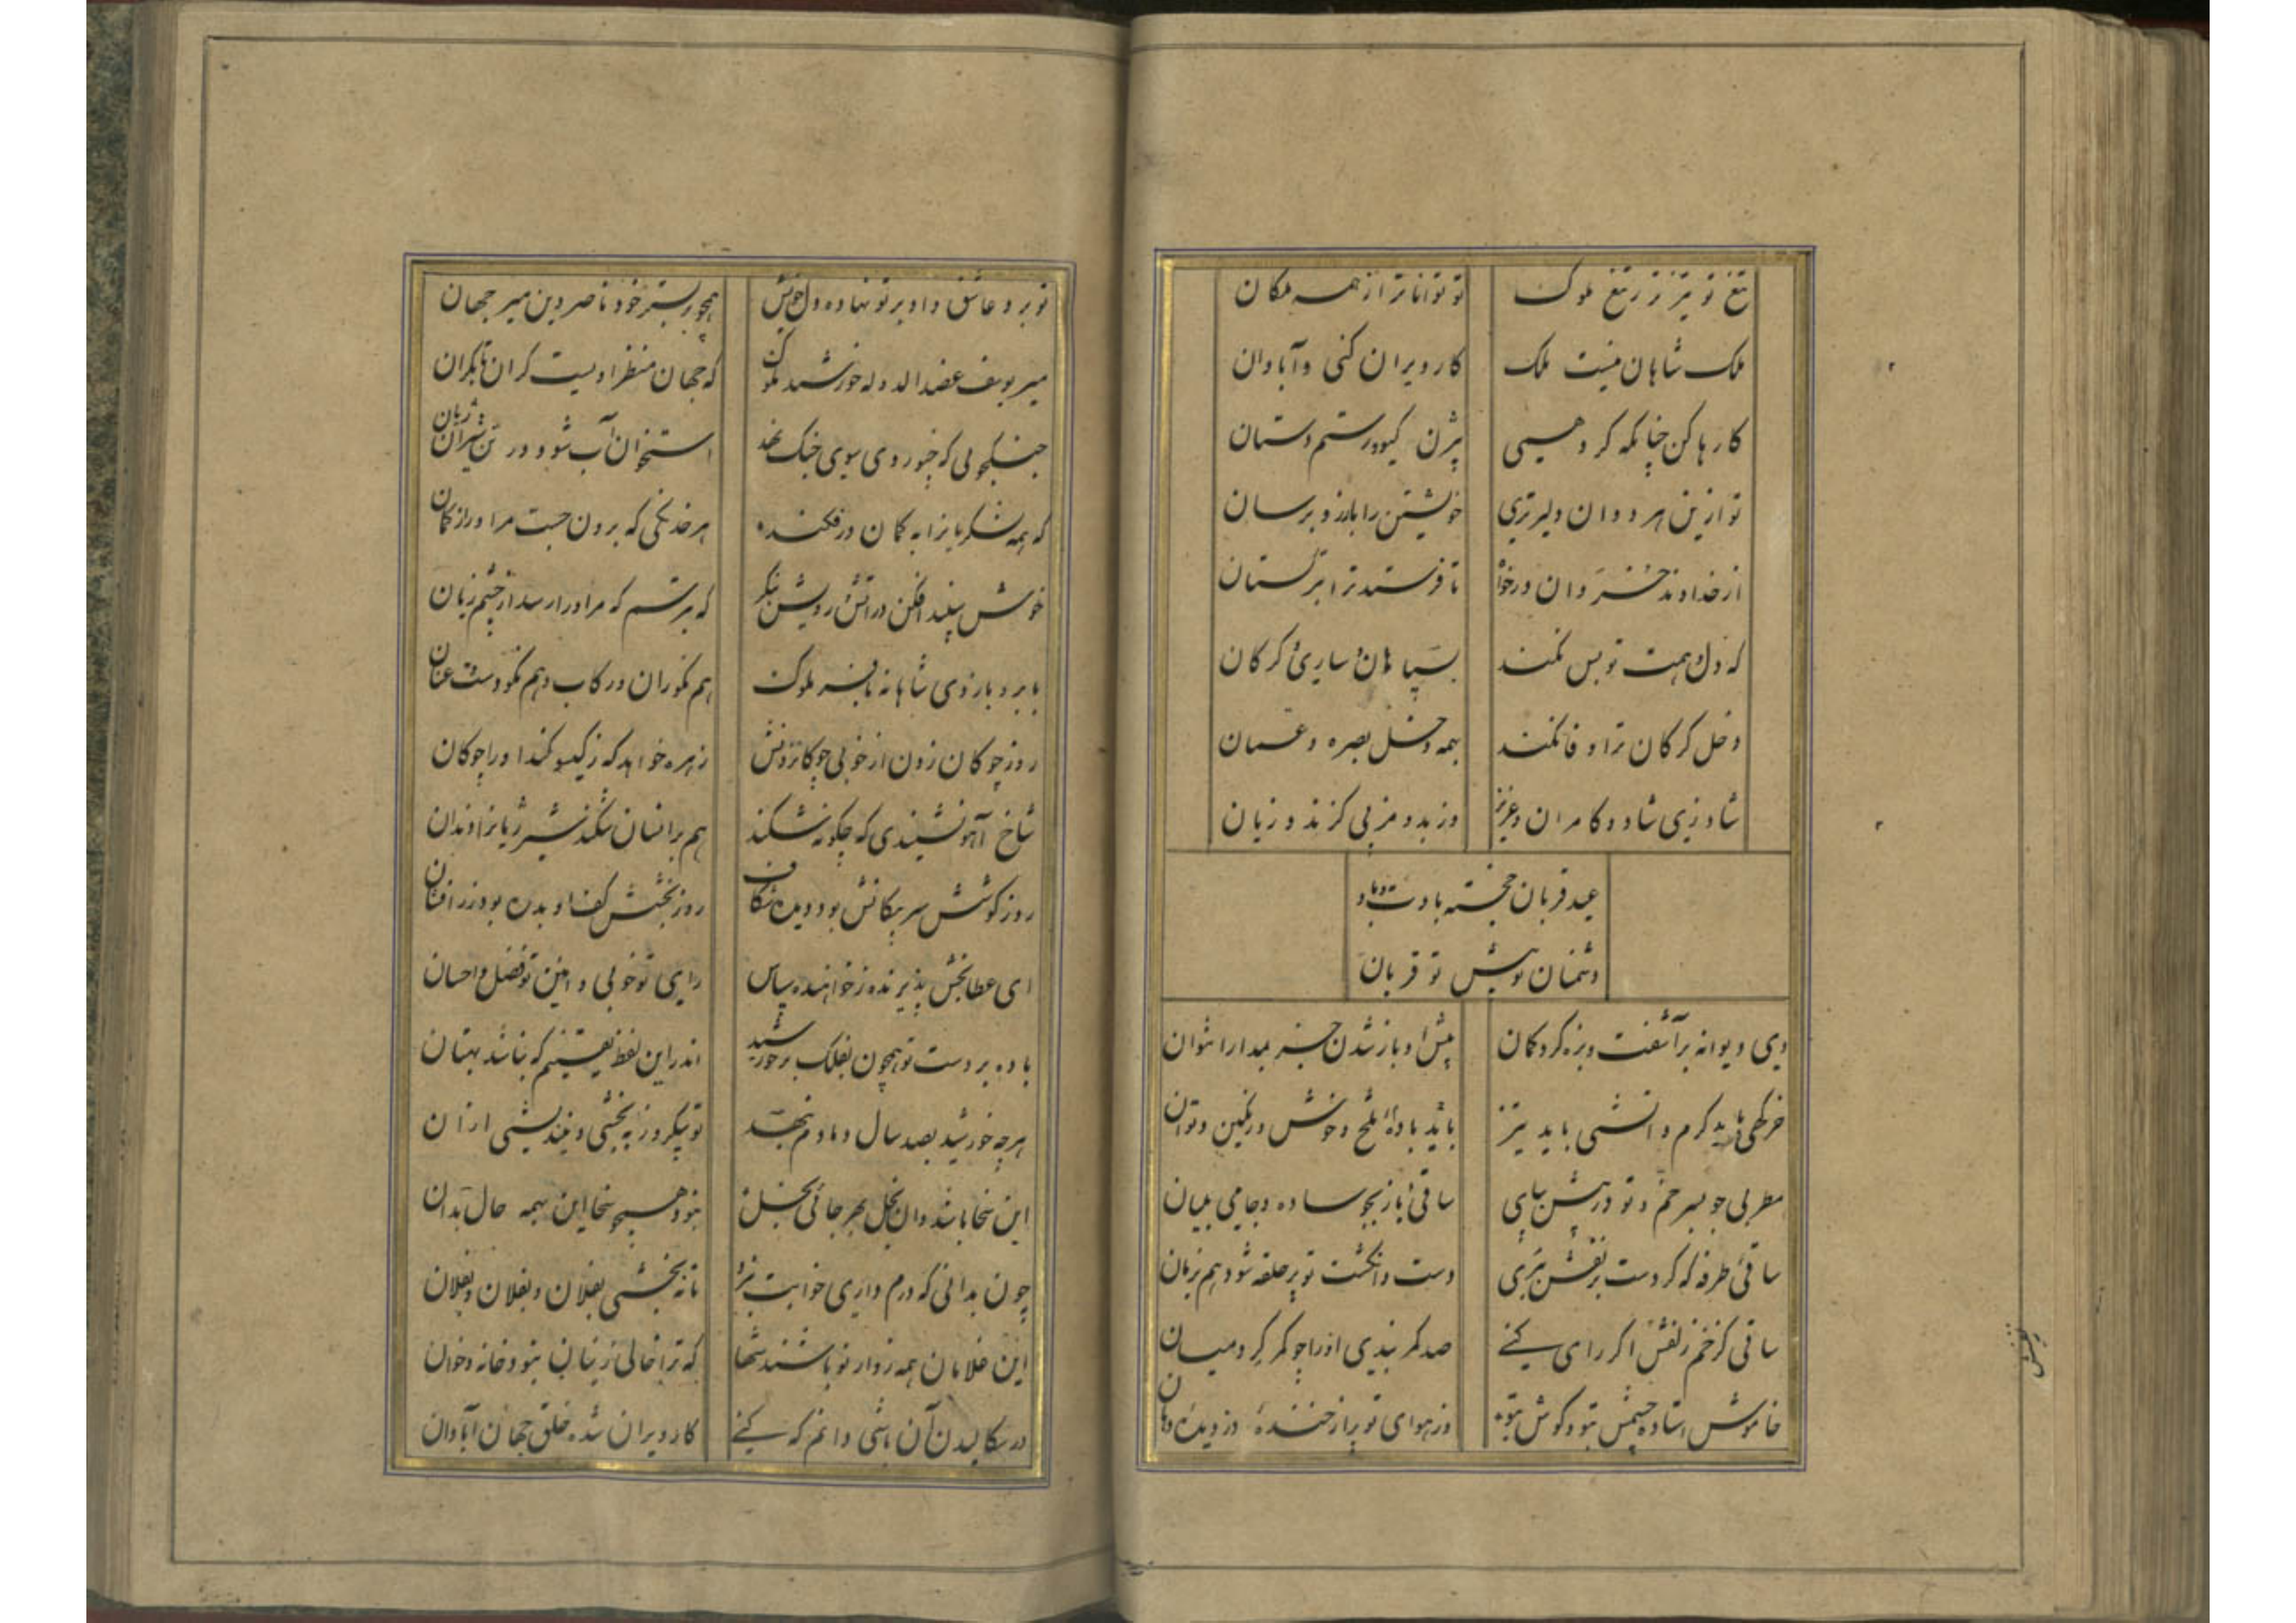 تیغ تو تیزتر ز تیغ ملوک    تو تواناتر از همه ملکان
ملک شاهان تست ملک    کار ویران کنی و آبادان
کارها کن چنانکه کرد همی    بیژن گیو و رستم دستان
تو ازین هر دوان دلیرتری    خویشتن را بآرزو برسان
از خداوند خسروان درخواه    تا فرستد ترا بترکستان
که دل همت تو بس نکند    بسپاهان و ساری و گرگان
دخل گرگان ترا وفا نکند    همه دخل بصره و عمان
شاد زی شاد و کامران و عزیز    وز بد دهر بی گزند و زیان
عید قربان خجسته بادت و باد
دشمنان تو پیش تو قربان
دی و دیوانه برآشفت و بزه کرد کمان    پیش او باز شدن جز بمدارا نتوان
خرگهی باید گرم و آتشی باید تیز    باید بادهٔ تلخ و خوش و رنگین و توان
مطربی جو بسر خم و تو در پیش بپای    ساقی باز بجو ساده و جامی بمیان
ساقی طرفه که گر دست بزلفش ببری    دست و انگشت تو پر حلقه شود هم بزمان
ساقی کز خم زلفش اگر رای کنی    صد کمر بندی او را چو کمر گرد میان
خاموش استاده چشمش بتو و گوش بتو    وز هوای تو پر از خنده دزدیده دهان
تو برو عاشق و او بر تو نهاده دل خویش    همچو بر بستر خود ناصر دین میر جهان
میر یوسف عضد الدوله خورشید ملوک    که جهان منظر اویست کران تا بکران
جنگجویی که چو روی سوی جنگ نهد    استخوان آب شود در تن شیران ژیان
که همه لشکریانرا به کمان درفکند    هر خدنگی که برون جست مر او را ز کمان
خوش سپند افکن در آتش رویش بنگر    که بترسم که مر او را رسد از چشم زیان
با بر و بازوی شاهانه با فر ملوک    هم نکو ران و رکاب و هم نکو دست و عنان
روز چوگان زدن از خوبی چوگان زدنش    زهره خواهد که ز گیسو کند او را چوگان
شاخ آهو نشنیدی که چگونه شکند    هم بر انسان شکند شیر ژیانرا دندان
روز کوشش سر پیکانش بود دیده شکاف    روز بخشش کف او بدره بود زر افشان
ای عطابخش پذیرنده ز خواهنده سپاس    رای تو خوبی و آیین تو فضل و احسان
باده بر دست تو همچون بفلک بر خورشید    اندر این لفظ یقینم که نباشد بهتان
هر چه خورشید بصد سال دمادم بنهد    تو بیکروز ببخشی و نیندیشی از آن
این سخا باشد و آن بخل بهر جائی بخل    نبود هیچ سخا این همه حال بدان
چون بدانی که درم داری خوابت نبرد    تا نبخشی بفلان و بفلان و بفلان
این غلامان همه زوار تو باشند شها    که ترا خالی زینان نبود خانه و خوان
در سکالیدن آن باشی دانم که کنی    کار ویران شده خلق جهان آبادان